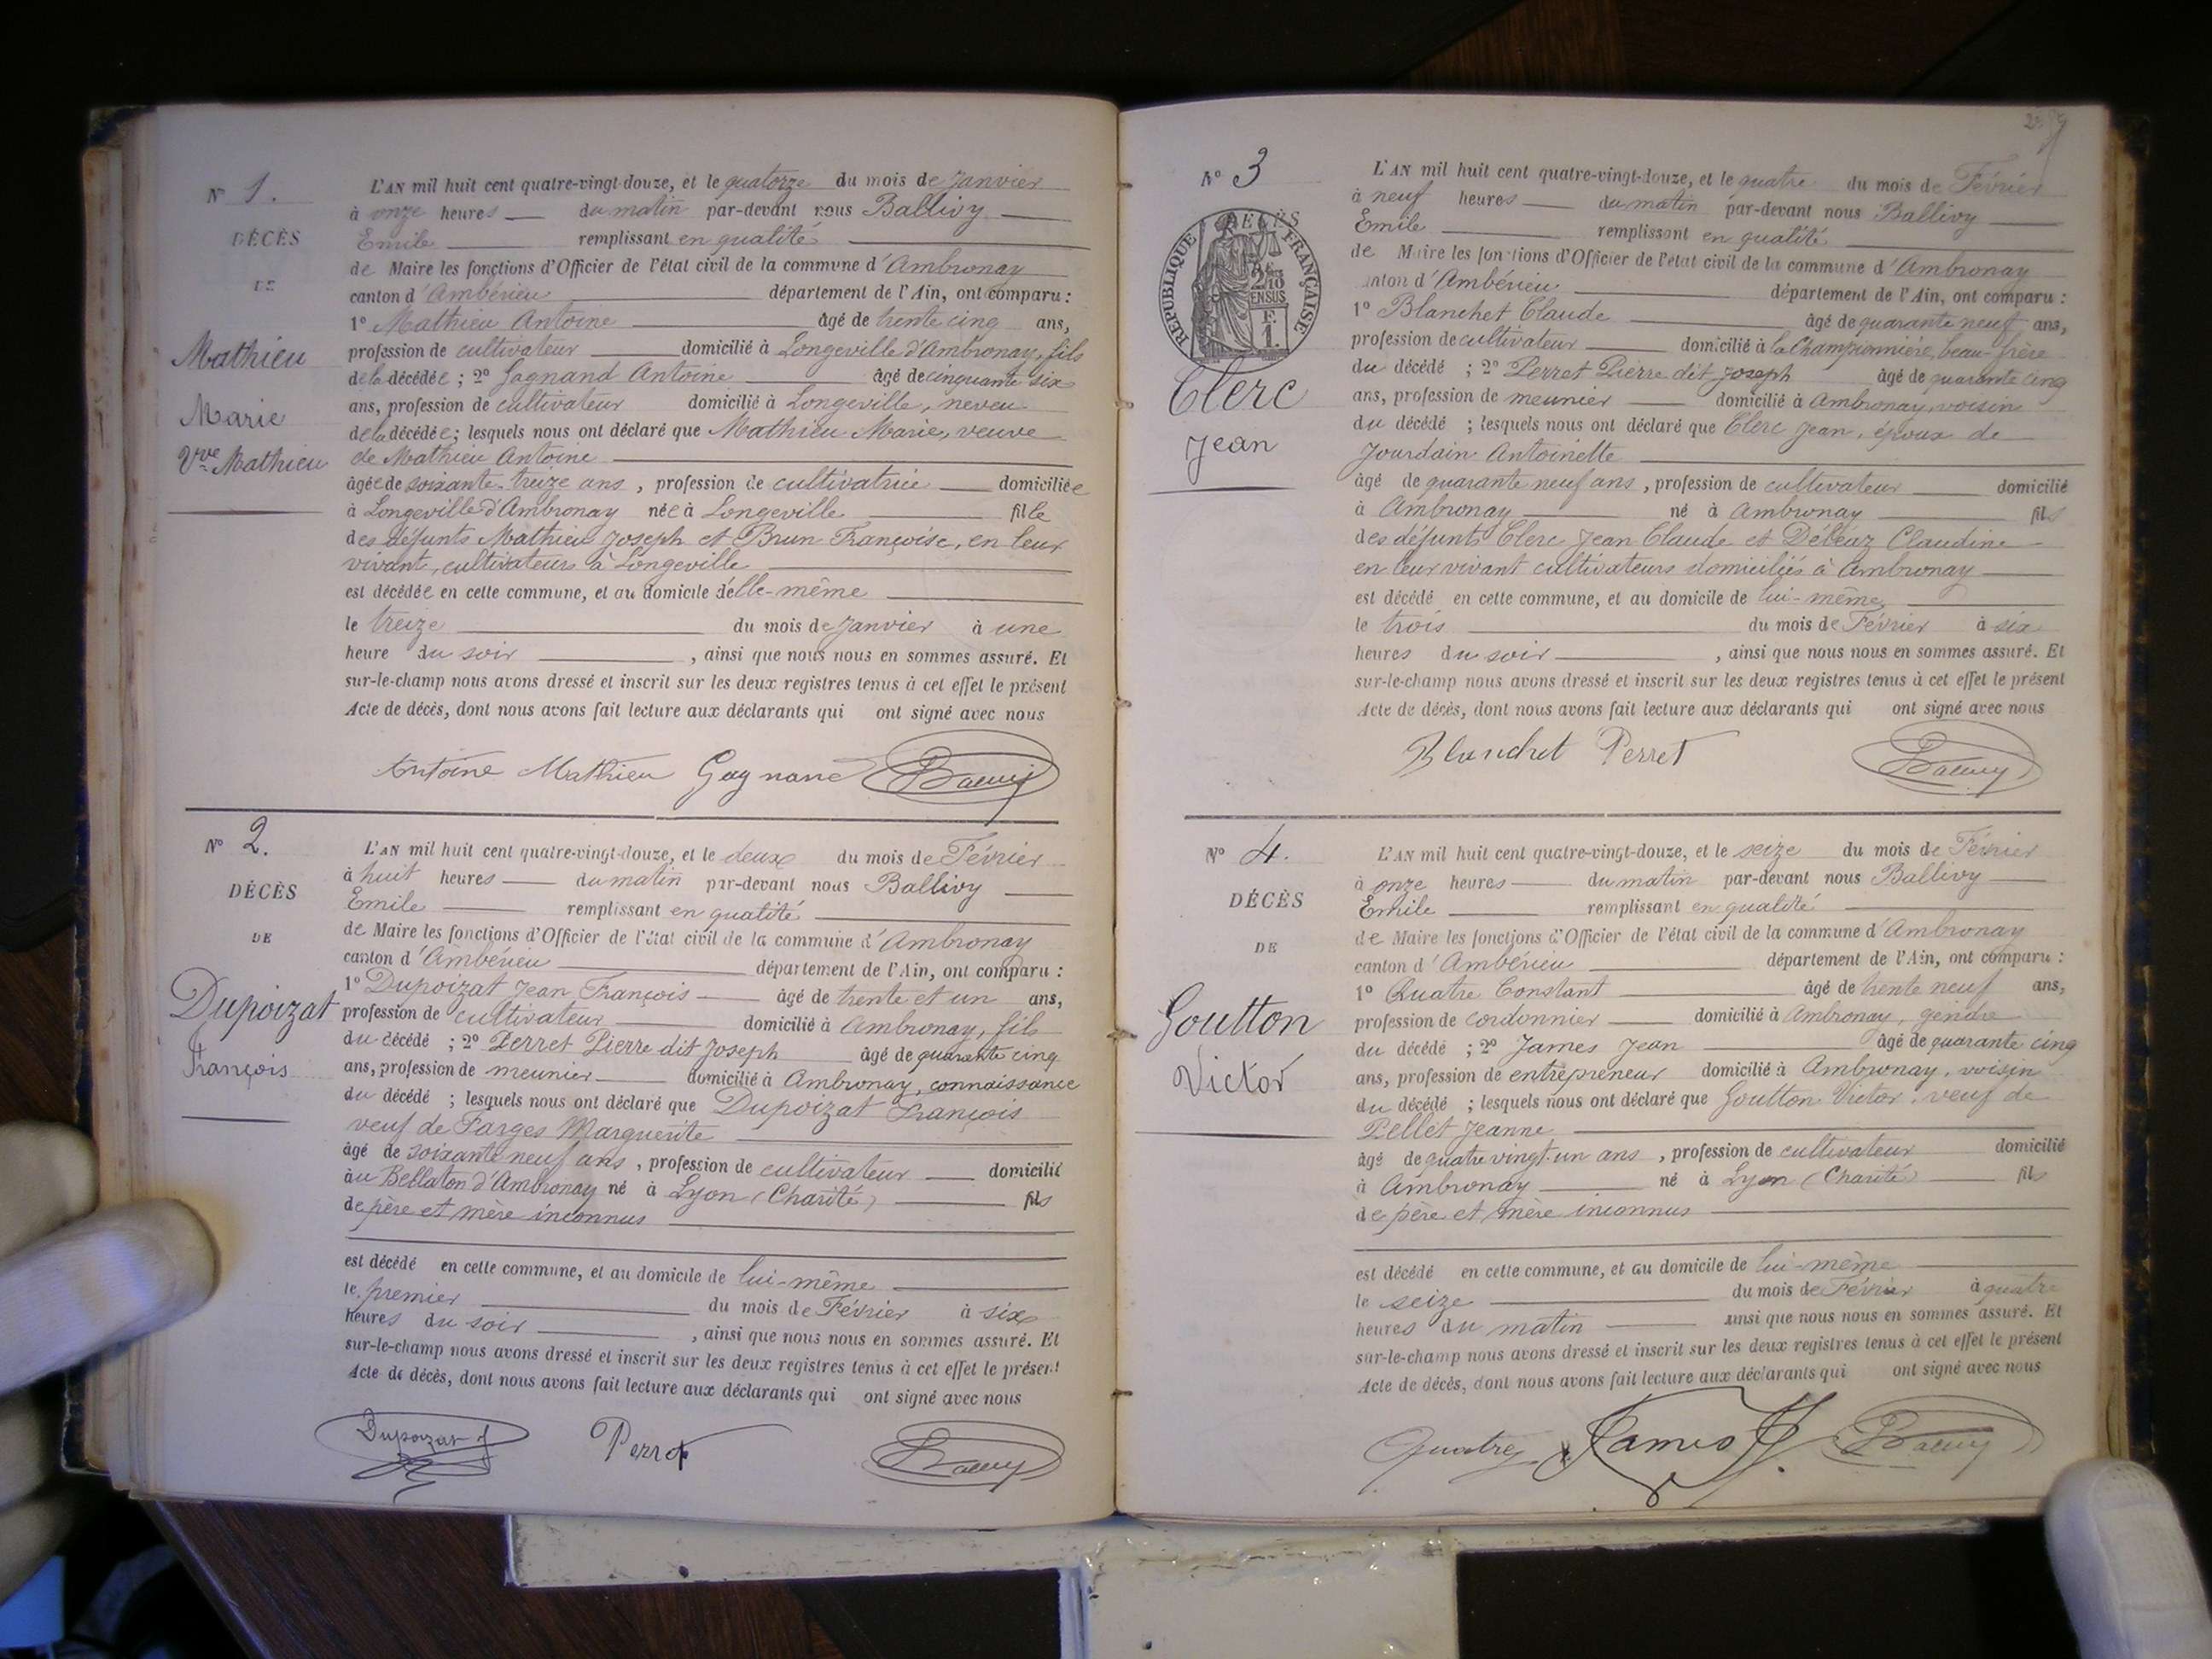 N° 1.
DÉCÈS
DE
Mathieu
Marie
Vve Mathieu
L'AN mil huit cent quatre-vingt-douze, et le quatorze du mois de Janvier
à onze heures du matin par-devant nous Ballivy
Emile remplissant en qualité
de Maire les fonctions d'Officier de l'état civil de la commune d'Ambronay
canton d'Ambérieu département de l'Ain, ont comparu :
1° Mathieu Antoine âgé de trente cinq ans,
profession de cultivateur domicilié à Longeville d'Ambronay, fils
de la décédée ; 2° Gagnand Antoine âgé de cinquante six
ans, profession de cultivateur domicilié à Longeville, neveu
de la décédée ; lesquels nous ont déclaré que Mathieu Marie, veuve
de Mathieu Antoine
âgée de soixante-treize ans, profession de cultivatrice domiciliée
à Longeville d'Ambronay née à Longeville fille
des défunts Mathieu Joseph et Brun Françoise, en leur
vivant, cultivateurs à Longeville
est décédée en cette commune, et au domicile d'elle-même
le treize du mois de Janvier à une
heure du soir, ainsi que nous nous en sommes assuré. Et
sur-le-champ nous avons dressé et inscrit sur les deux registres tenus à cet effet le présent
Acte de décès, dont nous avons fait lecture aux déclarants qui ont signé avec nous
Antoine Mathieu Gagnand
N° 2.
DÉCÈS
DE
Dupoizat
François
L'AN mil huit cent quatre-vingt-douze, et le deux du mois de Février
à huit heures du matin par-devant nous Ballivy
Emile remplissant en qualité
de Maire les fonctions d'Officier de l'état civil de la commune d'Ambronay
canton d'Ambérieu département de l'Ain, ont comparu :
1° Dupoizat Jean François âgé de trente et un ans,
profession de cultivateur domicilié à Ambronay, fils
du décédé ; 2° Perret Pierre dit Joseph âgé de quarante cinq
ans, profession de meunier domicilié à Ambronay, connaissance
du décédé ; lesquels nous ont déclaré que Dupoizat François
veuf de Farges Marguerite
âgé de soixante neuf ans, profession de cultivateur domicilié
au Bellaton d'Ambronay né à Lyon (Charité) fils
de père et mère inconnus
est décédé en cette commune, et au domicile de lui-même
le premier du mois de Février à six
heures du soir, ainsi que nous nous en sommes assuré. Et
sur-le-champ nous avons dressé et inscrit sur les deux registres tenus à cet effet le présent
Acte de décès, dont nous avons fait lecture aux déclarants qui ont signé avec nous
Dupoizat Perret
N° 3
DÉCÈS
RÉPUBLIQUE FRANÇAISE
Clerc
Jean
L'AN mil huit cent quatre-vingt-douze, et le quatre du mois de Février
à neuf heures du matin par-devant nous Ballivy
Emile remplissant en qualité
de Maire les fonctions d'Officier de l'état civil de la commune d'Ambronay
canton d'Ambérieu département de l'Ain, ont comparu :
1° Blanchet Claude âgé de quarante neuf ans,
profession de cultivateur domicilié à la Championnière, beau-frère
du décédé ; 2° Perret Pierre dit Joseph âgé de quarante cinq
ans, profession de meunier domicilié à Ambronay, voisin
du décédé ; lesquels nous ont déclaré que Clerc Jean, époux de
Jourdain Antoinette
âgé de quarante neuf ans, profession de cultivateur domicilié
à Ambronay né à Ambronay fils
des défunts Clerc Jean Claude et Claudine
en leur vivant cultivateurs domiciliés à Ambronay
est décédé en cette commune, et au domicile de lui-même
le trois du mois de Février à six
heures du soir, ainsi que nous nous en sommes assuré. Et
sur-le-champ nous avons dressé et inscrit sur les deux registres tenus à cet effet le présent
Acte de décès, dont nous avons fait lecture aux déclarants qui ont signé avec nous
Blanchet Perret
N° 4.
DÉCÈS
DE
Goutton
Victor
L'AN mil huit cent quatre-vingt-douze, et le seize du mois de Février
à onze heures du matin par-devant nous Ballivy
Emile remplissant en qualité
de Maire les fonctions d'Officier de l'état civil de la commune d'Ambronay
canton d'Ambérieu département de l'Ain, ont comparu :
1° Quatre Constant âgé de trente neuf ans,
profession de cordonnier domicilié à Ambronay, gendre
du décédé ; 2° James Jean âgé de quarante cinq
ans, profession de entrepreneur domicilié à Ambronay, voisin
du décédé ; lesquels nous ont déclaré que Goutton Victor, veuf de
Pellet Jeanne
âgé de quatre vingt-un ans, profession de cultivateur domicilié
à Ambronay né à Lyon (Charité) fils
de père et mère inconnus
est décédé en cette commune, et au domicile de lui-même
le seize du mois de Février à quatre
heures du matin ainsi que nous nous en sommes assuré. Et
sur-le-champ nous avons dressé et inscrit sur les deux registres tenus à cet effet le présent
Acte de décès, dont nous avons fait lecture aux déclarants qui ont signé avec nous
Quatre James